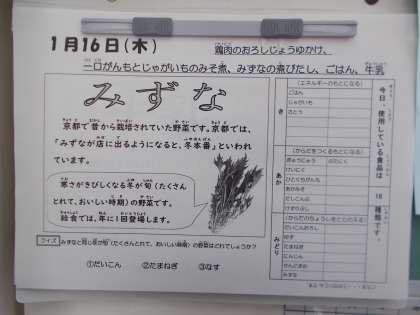 1月16日(木)
鶏肉のおろしじょうゆかけ、
一口がんもとじゃがいものみそ煮、みずなの煮びたし、ごはん、牛乳
みずな
京都で昔から栽培されていた野菜です。京都では、
「みずなが店に出るようになると、冬本番」といわれ
ています。
寒さがきびしくなる冬が旬(たくさん
とれて、おいしい時期)の野菜です。
給食では、年に1回登場します。
クイズ
みずなと同じ冬が旬(たくさんとれて、おいしい時期)の野菜はどれでしょうか?
①だいこん ②たまねぎ ③なす
今日、使用している食品は 18 種類です。
(エネルギーのもとになる)
き
ごはん
じゃがいも
さとう
(からだをつくるもとになる)
あか
ぎゅうにゅう
とりにく
ひとくちがんも
あかみそ
(からだのちょうしをととのえる)
みどり
だいこんおろし
ゆず
たまねぎ
にんじん
さんどまめ
みずな